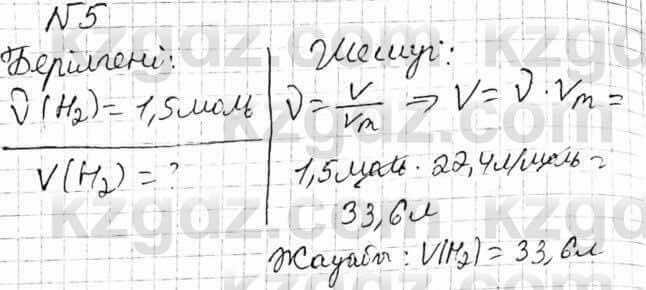 N5
Берілгені:
ν(H₂) = 1,5 моль
V(H₂) = ?
Шешуі:
ν = V/Vm ⇒ V = ν · Vm =
1,5 моль · 22,4 л/моль =
33,6 л
Жауабы: V(H₂) = 33,6 л
kzgdz.com